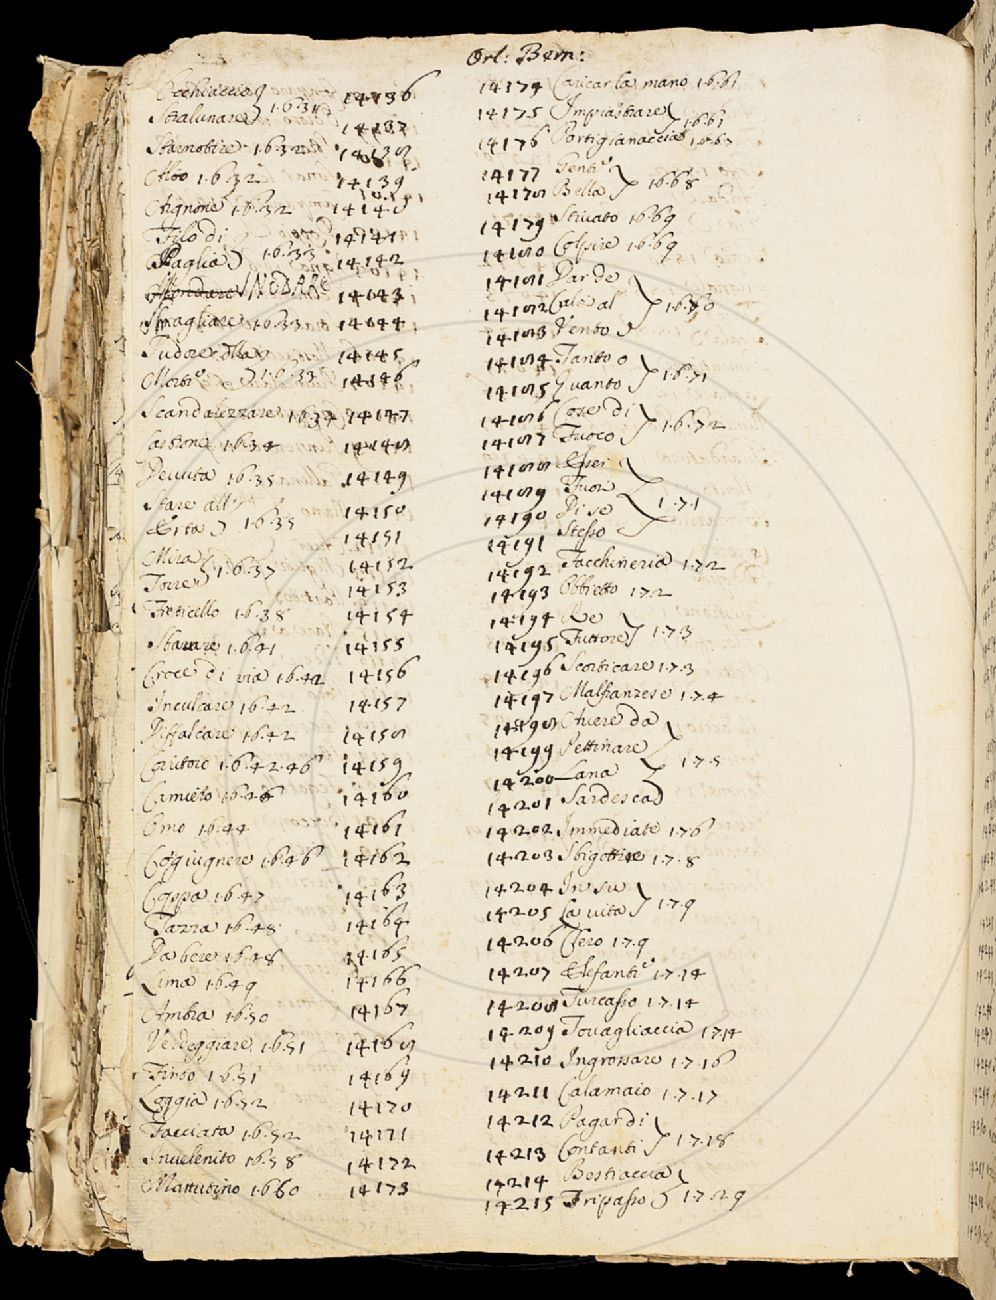 Orl: Bern:
Occhiaccio 14136
Stralunare 1.6.31 14137
Starnotire 1.6.32 14138
Alto 1.6.32 14139
Atignone 1.6.32 14140
Filo di 14141
Paglia 1.6.33 14142
SNODARE 14143
Smagliare 1.6.33 14144
Tudore 14145
Morbi 1.6.33 14146
Scandalezzare 1.6.34 14147
1.6.34 14148
Devuta 1.6.35 14149
Stare all' 14150
Erta 1.6.35 14151
Mira 14152
Torre 1.6.37 14153
Freticello 1.6.38 14154
Starare 1.6.41 14155
Croce di via 1.6.42 14156
Inculcare 1.6.42 14157
Diffalcare 1.6.42 14158
1.6.42.46 14159
Camicio 1.6.46 14160
Omo 1.6.44 14161
Cogiugnere 1.6.46 14162
Coppa 1.6.47 14163
Tazza 1.6.48 14164
Da bere 1.6.48 14165
Lima 1.6.49 14166
Ambra 1.6.50 14167
Verdeggiare 1.6.51 14168
Finto 1.6.51 14169
Loggia 1.6.52 14170
Facciata 1.6.52 14171
Invelenito 1.6.58 14172
Mattutino 1.6.60 14173
14174 Caricar la mano 1.6.61
14175 Impiastrare
14176 Portigianaccia 1.6.61 1.6.63
14177 Genti
14178 Bella 1.6.68
14179 Stivato 1.6.69
14180 Colpire 1.6.69
14181 Dar de
14182 Calci al 1.6.70
14183 Vento
14184 Tanto o
14185 Quanto 1.6.71
14186 Cose di
14187 Fuoco 1.6.72
14188 Esser
14189 Fuor
14190 Di se 1.7.1
14191 Stesso
14192 Facchineria 1.7.2
14193 Obbietto 1.7.2
14194 Re
14195 Futtore 1.7.3
14196 Scorticare 1.7.3
14197 Malfranzese 1.7.4
14198 Avere da
14199 Pettinare
14200 Lana 1.7.5
14201 Sardesca
14202 Immediate 1.7.6
14203 Sbigottire 1.7.8
14204 In su
14205 La vita 1.7.9
14206 Cero 1.7.9
14207 Elefanti 1.7.14
14208 Turcasso 1.7.14
14209 Tovagliaccia 1.7.14
14210 Ingrossare 1.7.16
14211 Calamaio 1.7.17
14212 Pagar di
14213 Contanti 1.7.18
14214 Bestiaccia
14215 Fripasso 1.7.29